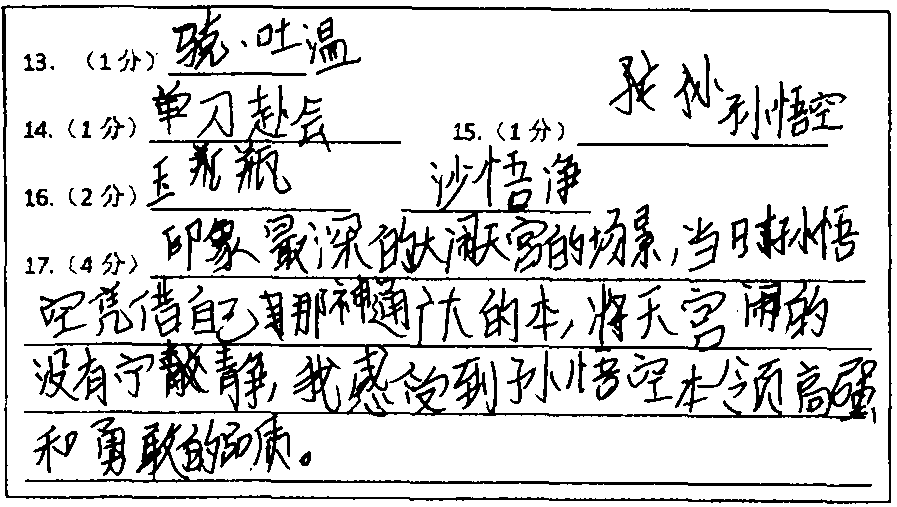 13. （1分） 骁·吐温
14.（1分） 单刀赴会 15.（1分） 孙悟空
16.（2分） 玉瓶 沙悟净
17.（4分） 印象最深的大闹天宫的场景,当时孙悟
空凭借自己那神通广大的本,将天宫闹的
没有宁静,我感受到孙悟空本领高强
和勇敢的品质。